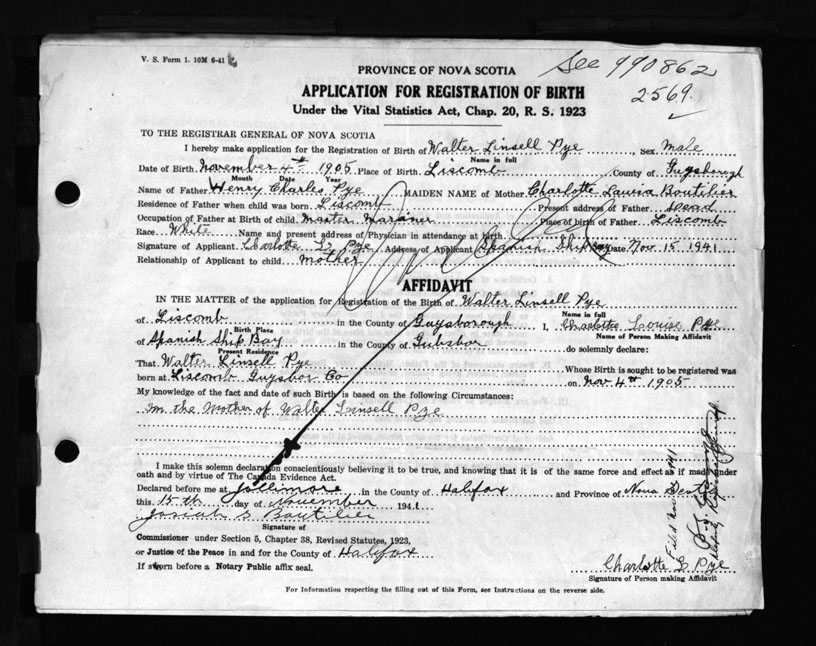 V. S. Form 1. 10M 6-41
See 990862
PROVINCE OF NOVA SCOTIA
2569
APPLICATION FOR REGISTRATION OF BIRTH
Under the Vital Statistics Act, Chap. 20, R. S. 1923
TO THE REGISTRAR GENERAL OF NOVA SCOTIA
I hereby make application for the Registration of Birth of Walter Linsell Pye Sex Male
Name in full
Date of Birth November 4th 1905 Place of Birth Liscomb County of Guysborough
Month Date Year
Name of Father Henry Charles Pye MAIDEN NAME of Mother Charlotte Boutilier
Residence of Father when child was born Liscomb Present address of Father Dead
Occupation of Father at Birth of child Master Mariner Place of birth of Father Liscomb
Race White Name and present address of Physician in attendance at birth
Signature of Applicant Charlotte L Pye Address of Applicant Spanish Ship Bay Date Nov 15 1941
Relationship of Applicant to child mother
AFFIDAVIT
IN THE MATTER of the application for Registration of the Birth of Walter Linsell Pye
Name in full
of Liscomb in the County of Guysborough I, Charlotte Louise Pye
Birth Place Name of Person Making Affidavit
of Spanish Ship Bay in the County of Gubsbor do solemnly declare:
Present Residence
That Walter Linsell Pye Whose Birth is sought to be registered was
born at Liscomb Guysbor Co on Nov 4th 1905
My knowledge of the fact and date of such Birth is based on the following Circumstances:
Im the Mother of Walter Linsell Pye
I make this solemn declaration conscientiously believing it to be true, and knowing that it is of the same force and effect as if made under
oath and by virtue of The Canada Evidence Act.
Declared before me at Jollimore in the County of Halifax and Province of Nova Scotia
this 15th day of November 1941
Josiah S Boutilier
Signature of
Commissioner under Section 5, Chapter 38, Revised Statutes, 1923,
or Justice of the Peace in and for the County of Halifax
If sworn before a Notary Public affix seal.
Charlotte L Pye
Signature of Person making Affidavit
For Information respecting the filling out of this Form, see Instructions on the reverse side.